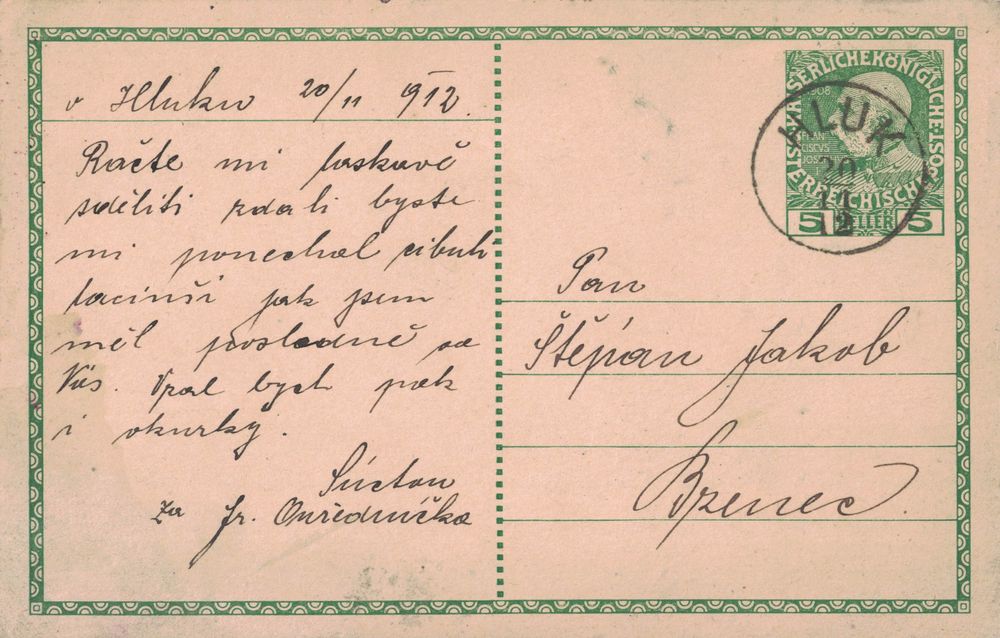 v Hluku 20/11 1912.
Račte mi laskavě
sděliti zdali byste
mi ponechal cibuli
lacinší jak jsem
měl posledně od
Vás. Vzal bych pak
i okurky.
Súctou
Za Fr. Onředníčka
KAISERLICHE KÖNIGLICHE ÖSTERREICHISCHE
1908
5 HELLER 5
HLUK
20
11
12
Pan
Štěpán Jakob
Bzenec